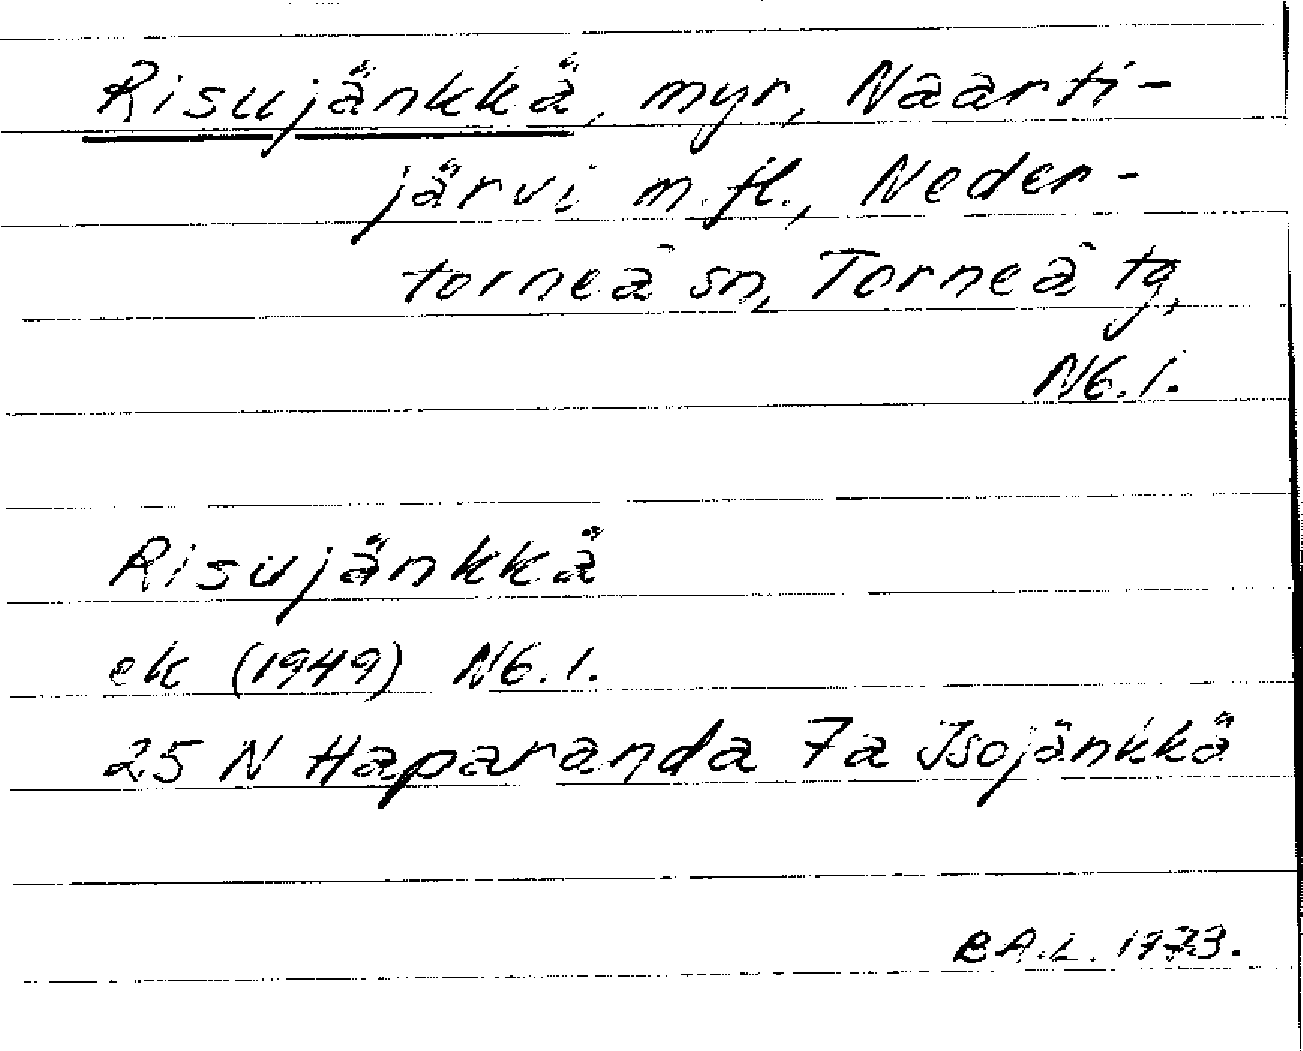 Risujänkkä, myr, Naarti-
järvi m.fl., Neder-
torneå sn, Torneå tg,
Nb.l.
Risujänkkä
ek (1949) Nb.l.
25 N Haparanda 7a Isojänkkä
B.A.L. 1973.